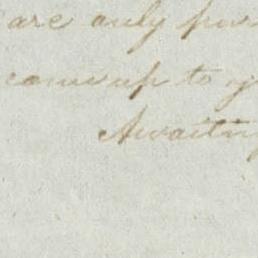 are only par
come up to y
Awaiting